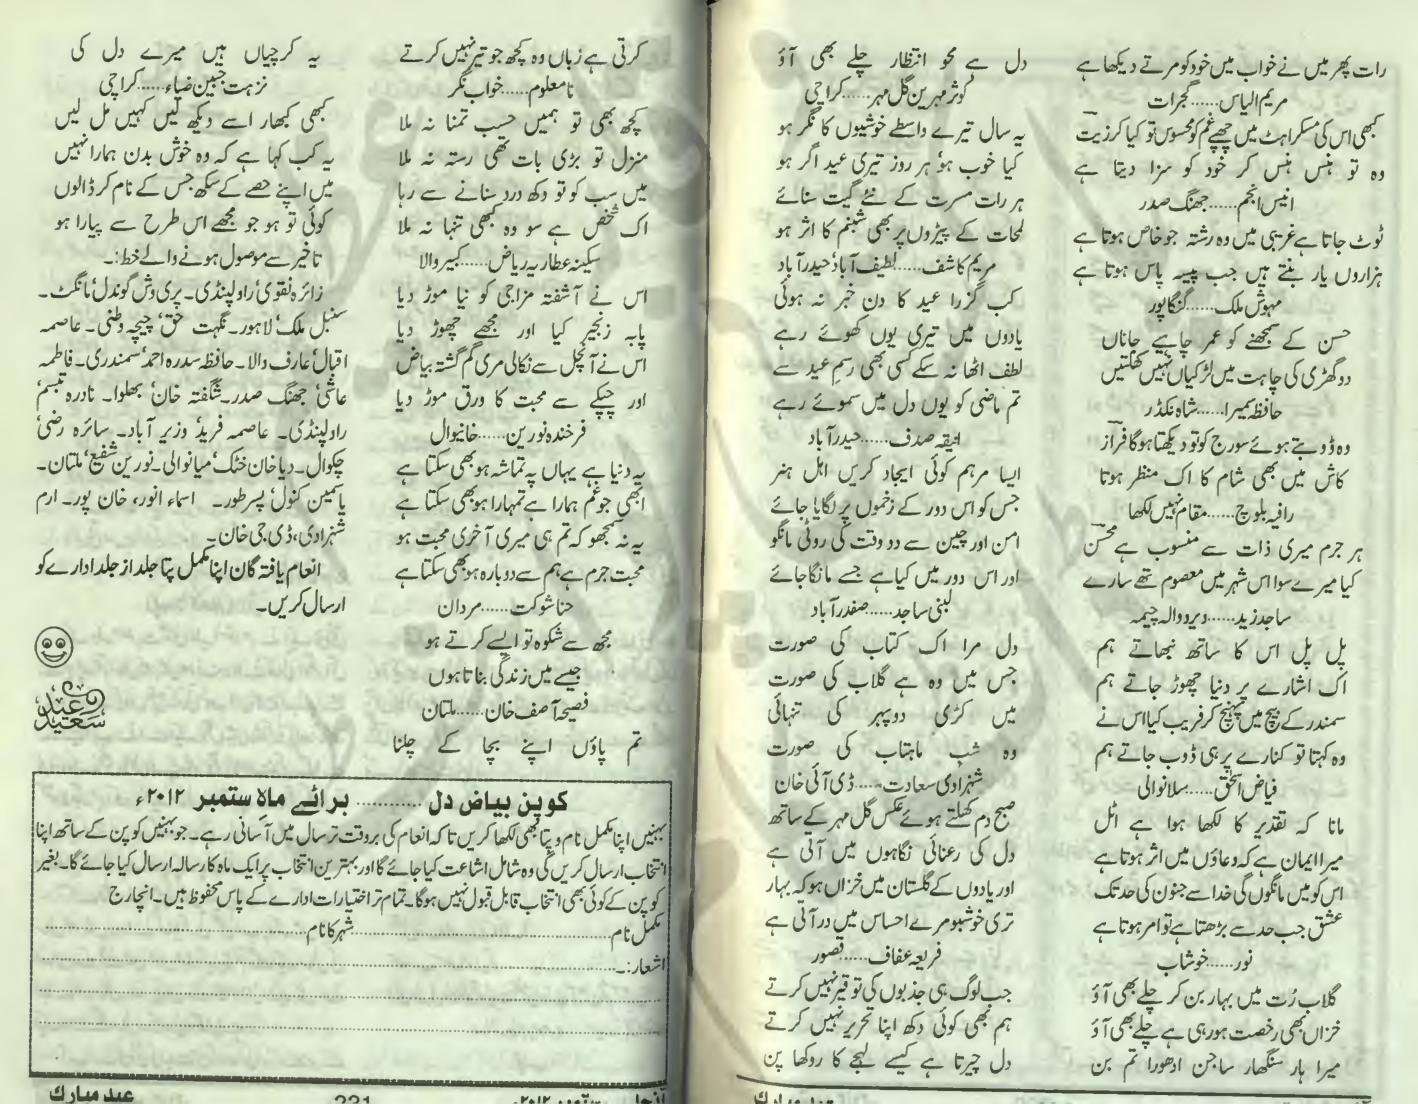 رات پھر میں نے خواب میں خود کو مرتے دیکھا ہے
مریم الیاس......گجرات
کبھی اس کی مسکراہٹ میں چھپے غم کو محسوس تو کیا کر زیت
وہ تو ہنس ہنس کر خود کو سزا دیتا ہے
انیس انجم......جھنگ صدر
ٹوٹ جاتا ہے غریبی میں وہ رشتہ جو خاص ہوتا ہے
ہزاروں یار بنتے ہیں جب پیسہ پاس ہوتا ہے
مہوش ملک......گنگاپور
حسن کے سمجھنے کو عمر چاہیے جاناں
دو گھڑی کی چاہت میں لڑکیاں نہیں کھلتیں
حافظہ سمیرا......شاہ نکڈر
وہ ڈوبتے ہوئے سورج کو تو دیکھتا ہوگا فراز
کاش میں بھی شام کا اک منظر ہوتا
رافیہ بلوچ......مقام نہیں لکھا
ہر جرم میری ذات سے منسوب ہے محسن
کیا میرے سوا اس شہر میں معصوم تھے سارے
ساجد زید......ویرووالہ چیمہ
پل پل اس کا ساتھ نبھاتے ہم
اک اشارے پر دنیا چھوڑ جاتے ہم
سمندر کے بیچ میں پہنچ کر فریب کیا اس نے
وہ کہتا تو کنارے پر ہی ڈوب جاتے ہم
فیاض اسحٰق......سلانوالی
مانا کہ تقدیر کا لکھا ہوا ہے اٹل
میرا ایمان ہے کہ دعاؤں میں اثر ہوتا ہے
اس کو میں مانگوں گی خدا سے جنون کی حد تک
عشق جب حد سے بڑھتا ہے تو امر ہوتا ہے
نور......خوشاب
گلاب رُت میں بہار بن کر چلے بھی آؤ
خزاں بھی رخصت ہو رہی ہے چلے بھی آؤ
میرا ہار سنگھار ساجن ادھورا تم بن
دل ہے محو انتظار چلے بھی آؤ
کوثر مہرین گل مہر......کراچی
یہ سال تیرے واسطے خوشیوں کا نگر ہو
کیا خوب ہو ہر روز تیری عید اگر ہو
ہر رات مسرت کے نئے گیت سنائے
لمحات کے پیڑوں پر بھی شبنم کا اثر ہو
مریم کاشف......لطیف آباد، حیدرآباد
کب گزرا عید کا دن خبر نہ ہوئی
یادوں میں تیری یوں کھوئے رہے
لطف اٹھا نہ سکے کسی بھی رسمِ عید سے
تم ماضی کو یوں دل میں سموئے رہے
انیقہ صدف......حیدرآباد
ایسا مرہم کوئی ایجاد کریں اہل ہنر
جس کو اس دور کے زخموں پر لگایا جائے
امن اور چین سے دو وقت کی روٹی مانگو
اور اس دور میں کیا ہے جسے مانگا جائے
لبنیٰ ساجد......صفدرآباد
دل مرا اک کتاب کی صورت
جس میں وہ ہے گلاب کی صورت
میں کڑی دوپہر کی تنہائی
وہ شب ماہتاب کی صورت
شہزادی سعادت......ڈی آئی خان
صبح دم کھلتے ہوئے عکس گل مہر کے ساتھ
دل کی رعنائی نگاہوں میں آتی ہے
اور یادوں کے گلستان میں خزاں ہو کہ بہار
تری خوشبو مرے احساس میں در آتی ہے
فریعہ عفاف......قصور
جب لوگ ہی جذبوں کی توقیر نہیں کرتے
ہم بھی کوئی دکھ اپنا تحریر نہیں کرتے
دل چیرتا ہے کیسے لہجے کا روکھا پن
کرتی ہے زباں وہ کچھ جو تیر نہیں کرتے
نامعلوم......خواب نگر
کچھ بھی تو ہمیں حسب تمنا نہ ملا
منزل تو بڑی بات تھی رستہ نہ ملا
میں سب کو تو دکھ درد سنانے سے رہا
اک شخص ہے سو وہ کبھی تنہا نہ ملا
سکینہ عطاریہ ریاض......کبیر والا
اس نے آشفتہ مزاجی کو نیا موڑ دیا
پابہ زنجیر کیا اور مجھے چھوڑ دیا
اس نے آنچل سے نکالی مری گم گشتہ بیاض
اور چپکے سے محبت کا ورق موڑ دیا
فرخندہ نورین......خانیوال
یہ دنیا ہے یہاں یہ تماشہ ہو بھی سکتا ہے
ابھی جو غم ہمارا ہے تمہارا ہو بھی سکتا ہے
یہ نہ سمجھو کہ تم ہی میری آخری محبت ہو
محبت جرم ہے ہم سے دوبارہ ہو بھی سکتا ہے
حنا شوکت......مردان
مجھ سے شکوہ تو ایسے کرتے ہو
جیسے میں زندگی بناتا ہوں
فصیحہ آصف خان......ملتان
تم پاؤں اپنے بچا کے چلنا
یہ کرچیاں ہیں میرے دل کی
نزہت جبین ضیاء......کراچی
کبھی کبھار اسے دیکھ لیں کہیں مل لیں
یہ کب کہا ہے کہ وہ خوش بدن ہمارا نہیں
میں اپنے حصے کے سکھ جس کے نام کر ڈالوں
کوئی تو ہو جو مجھے اس طرح سے پیارا ہو
تاخیر سے موصول ہونے والے خط:۔
زائرہ نقوی، راولپنڈی۔ پری وش گوندل، مانگٹ۔
سنبل ملک، لاہور۔ نگہت حق، چیچہ وطنی۔ عاصمہ
اقبال، عارف والا۔ حافظہ سدرہ احمد، سمندری۔ فاطمہ
عاشی، جھنگ صدر۔ شگفتہ خان، بھلوال۔ نادرہ تبسم،
راولپنڈی۔ عاصمہ فرید، وزیر آباد۔ سائرہ رضی،
چکوال۔ دیا خان خٹک، میانوالی۔ نورین شفیع، ملتان۔
یاسمین کنول، پسرطور۔ اسماء انور، خان پور۔ ارم
شہزادی، ڈی جی خان۔
انعام یافتہ گان اپنا مکمل پتا جلد از جلد ادارے کو
ارسال کریں۔
عید
سعید
کوپن بیاض دل ........... برائے ماہِ ستمبر ۲۰۱۲ء
بہنیں اپنا مکمل نام و پتا بھی لکھا کریں تاکہ انعام کی بروقت ترسال میں آسانی رہے۔ جو بہنیں کوپن کے ساتھ اپنا
انتخاب ارسال کریں گی وہ شامل اشاعت کیا جائے گا اور بہترین انتخاب پر ایک ماہ کا رسالہ ارسال کیا جائے گا۔ بغیر
کوپن کے کوئی بھی انتخاب قابل قبول نہیں ہوگا۔ تمام تر اختیارات ادارے کے پاس محفوظ ہیں۔ انچارج
مکمل نام..............................شہر کا نام..............................
اشعار:۔
عید مبارک